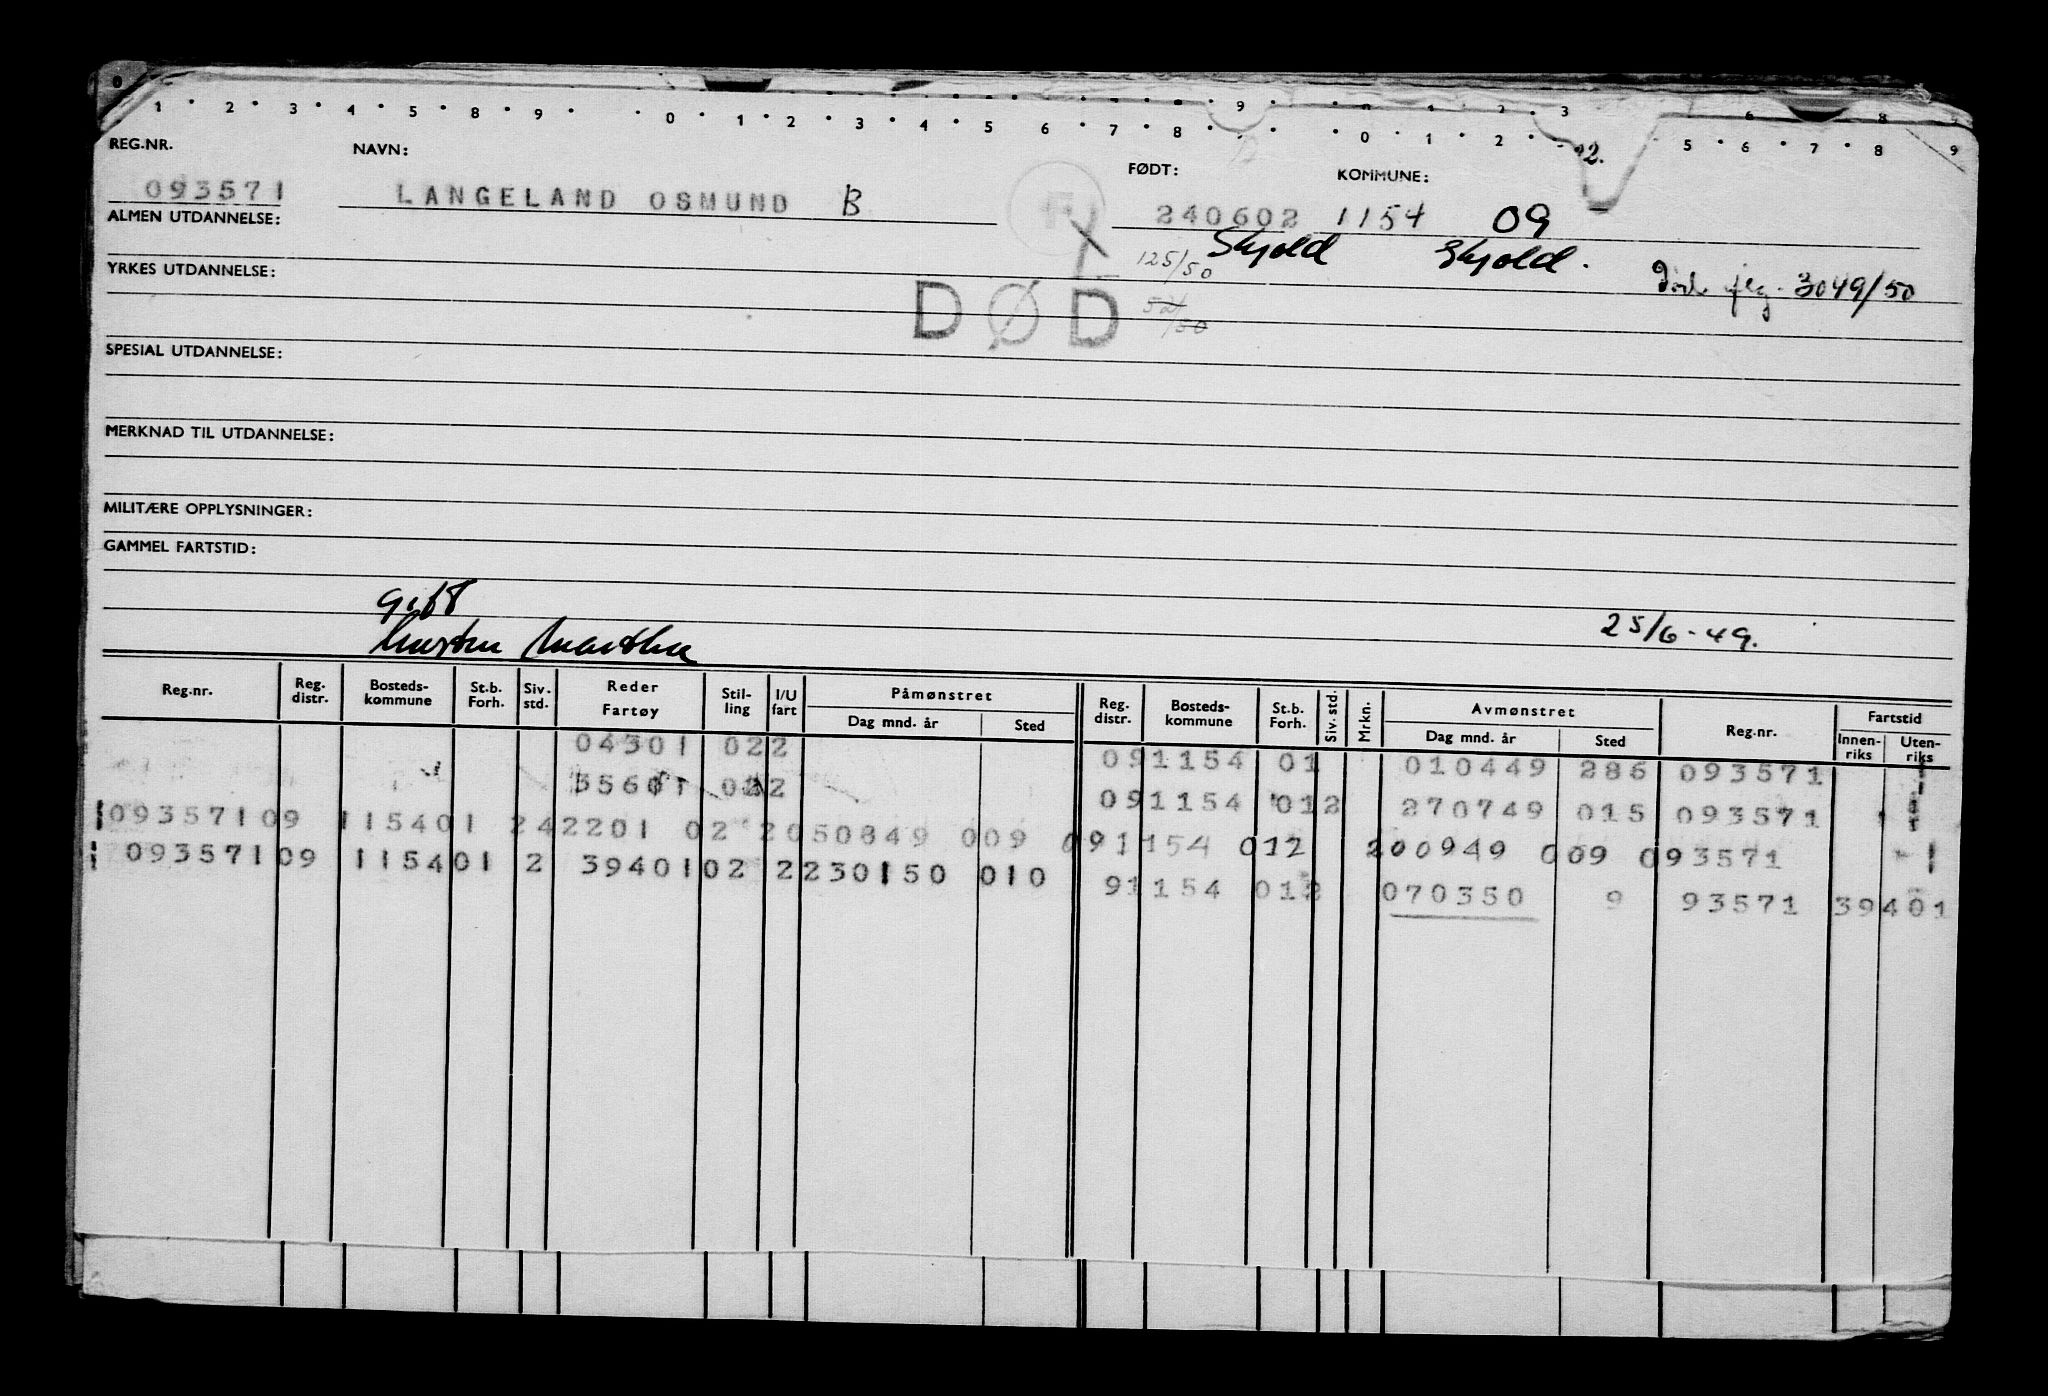 0
1 2 3 4 5 8 9 0 1 2 3 4 5 6 7 8 9 0 1 2 3 6 8 9
0 1 2 2. 5 6 7 8 9
REG.NR. NAVN: FØDT: KOMMUNE:
093571 LANGELAND OSMUND B 240602 1154 09
ALMEN UTDANNELSE: Skjold Skjold.
125/50
YRKES UTDANNELSE: Død 3049/50
DØD 52/50
SPESIAL UTDANNELSE:
MERKNAD TIL UTDANNELSE:
MILITÆRE OPPLYSNINGER:
GAMMEL FARTSTID:
gift
25/6-49.
Reg.nr. Reg. distr. Bosteds-kommune St.b. Forh. Siv. std. Reder Fartøy Stil-ling I/U fart Påmønstret Dag mnd. år Sted Reg. distr. Bosteds-kommune St.b. Forh. Siv. std. Mrkn. Avmønstret Dag mnd. år Sted Reg.nr. Fartstid Innen-riks Uten-riks
04301 022 091154 01 010449 286 093571
35601 022 091154 012 270749 015 093571
093571 09 1154 01 2 42201 02 2 050849 009 091154 012 200949 009 093571
093571 09 1154 01 2 39401 02 2 230150 010 91154 012 070350 9 93571 39401